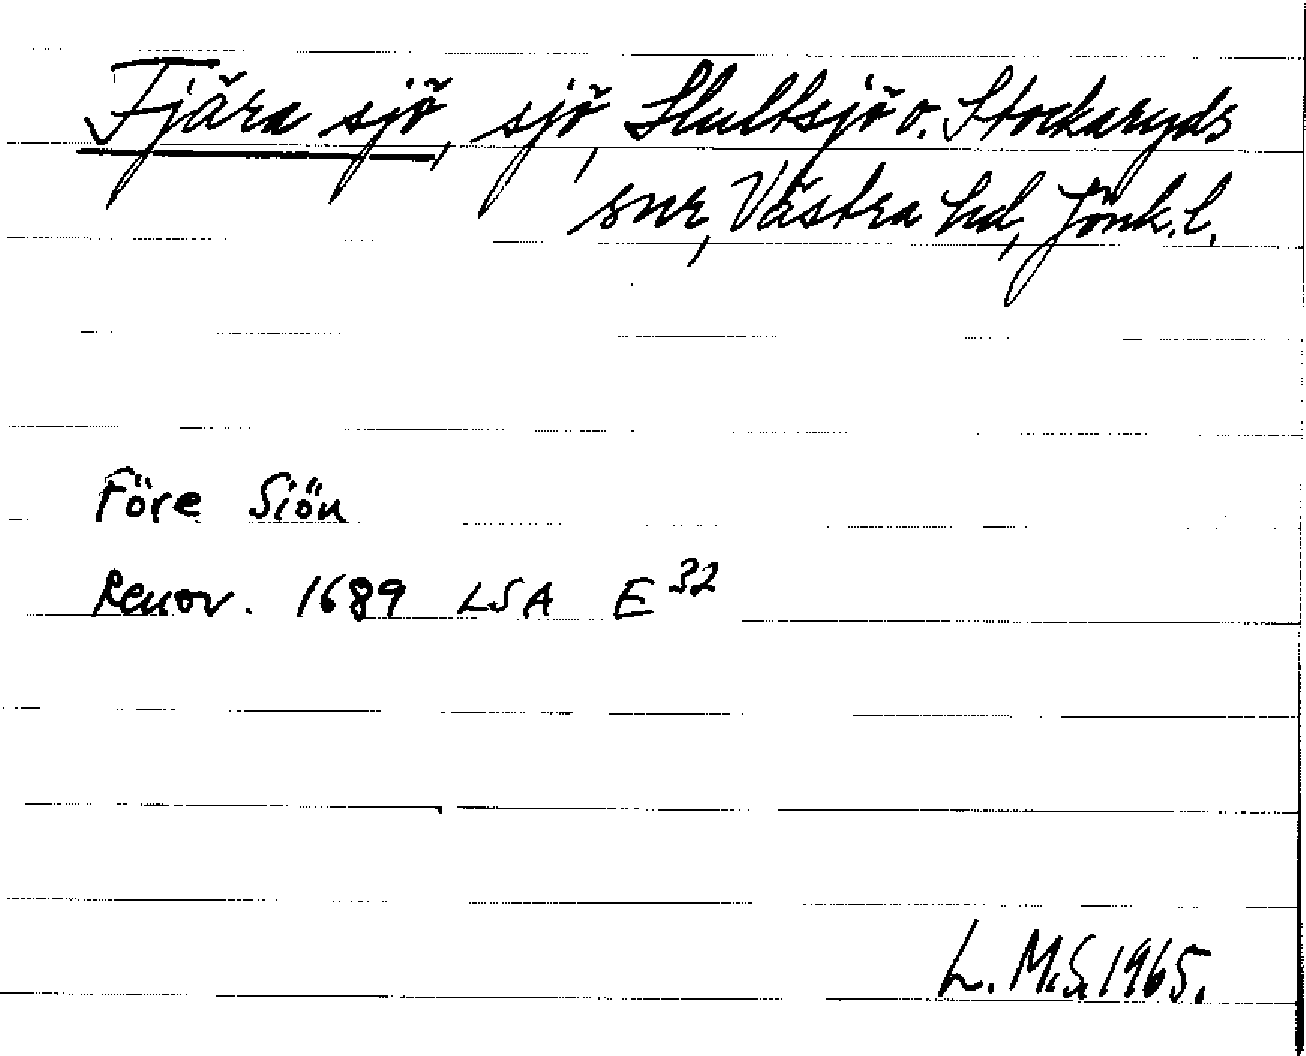 Fjära sjö, sjö, Hultsjö o. Stockaryds
snr, Västra hd, Jönk. l.
Före Siön
Renov. 1689 LSA E 32
L. M. S. 1965.